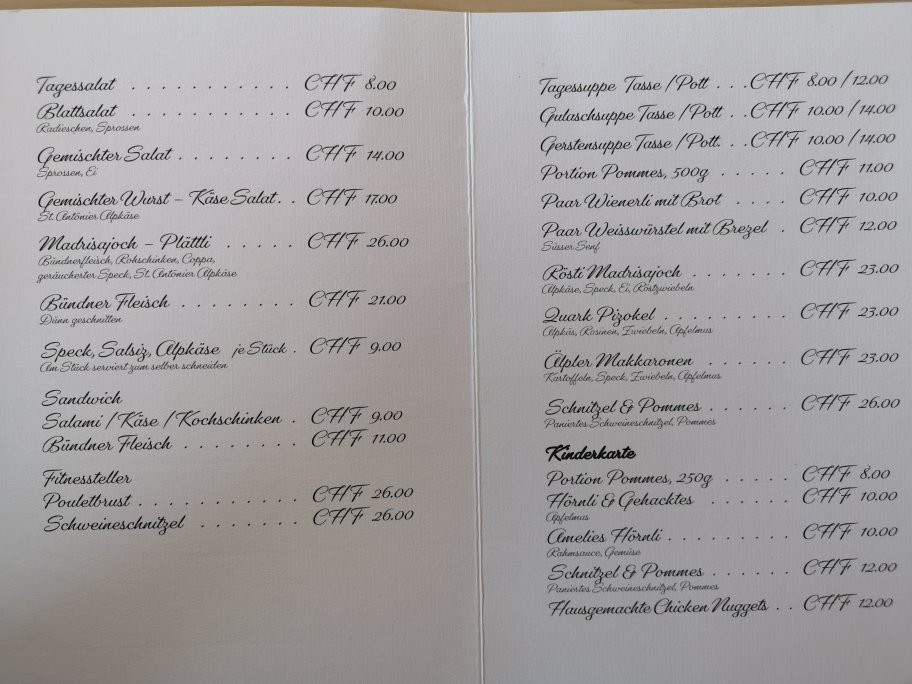 Tagessalat . . . . . . . . . . . . CHF 8.00
Blattsalat . . . . . . . . . . . . CHF 10.00
Radieschen, Sprossen
Gemischter Salat . . . . . . . . CHF 14.00
Sprossen, Ei
Gemischter Wurst – Käse Salat . . CHF 17.00
St. Antönier Alpkäse
Madrisajoch – Plättli . . . . . CHF 26.00
Bündnerfleisch, Rohschinken, Coppa,
geräucherter Speck, St. Antönier Alpkäse
Bündner Fleisch . . . . . . . . CHF 21.00
Dünn geschnitten
Speck, Salsiz, Alpkäse je Stück . CHF 9.00
Am Stück serviert zum selber schneiden
Sandwich
Salami / Käse / Kochschinken . CHF 9.00
Bündner Fleisch . . . . . . . . CHF 11.00
Fitnessteller
Pouletbrust . . . . . . . . . . . CHF 26.00
Schweineschnitzel . . . . . . . CHF 26.00
Tagessuppe Tasse / Pott . . . CHF 8.00 / 12.00
Gulaschsuppe Tasse / Pott . . CHF 10.00 / 14.00
Gerstensuppe Tasse / Pott. . . CHF 10.00 / 14.00
Portion Pommes, 500g . . . . . CHF 11.00
Paar Wienerli mit Brot . . . . CHF 10.00
Paar Weisswürstel mit Brezel . CHF 12.00
Süsser Senf
Rösti Madrisajoch . . . . . . . CHF 23.00
Alpkäse, Speck, Ei, Röstzwiebeln
Quark Pizokel . . . . . . . . CHF 23.00
Alpkäs, Rosinen, Zwiebeln, Apfelmus
Älpler Makkaronen . . . . . . CHF 23.00
Kartoffeln, Speck, Zwiebeln, Apfelmus
Schnitzel & Pommes . . . . . . CHF 26.00
Paniertes Schweineschnitzel, Pommes
Kinderkarte
Portion Pommes, 250g . . . . . CHF 8.00
Hörnli & Gehacktes . . . . . . CHF 10.00
Apfelmus
Amelies Hörnli . . . . . . . . . CHF 10.00
Rahmsauce, Gemüse
Schnitzel & Pommes . . . . . . CHF 12.00
Paniertes Schweineschnitzel, Pommes
Hausgemachte Chicken Nuggets . . CHF 12.00